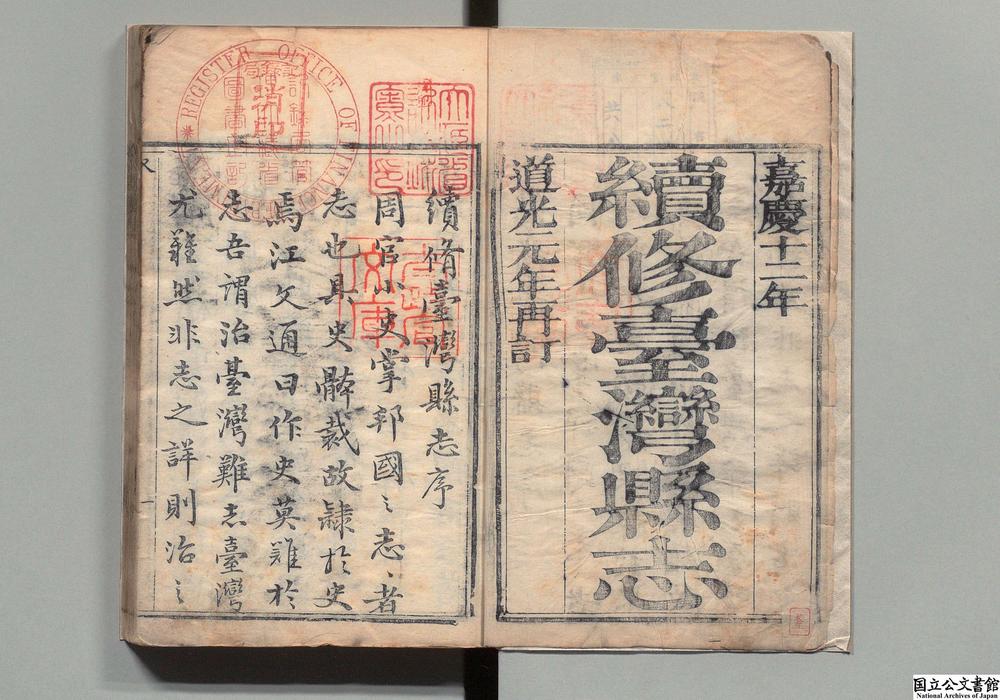 嘉慶十二年
續修臺灣縣志
道光元年再訂
續脩臺灣縣志序
周官小史掌邦國之志志者
志也具史體裁故隸於史
焉江文通曰作史莫難於
志吾謂治臺灣難志臺灣
尤難然非志之詳則治之
REGISTER OFFICE OF
国立公文書館
National Archives of Japan